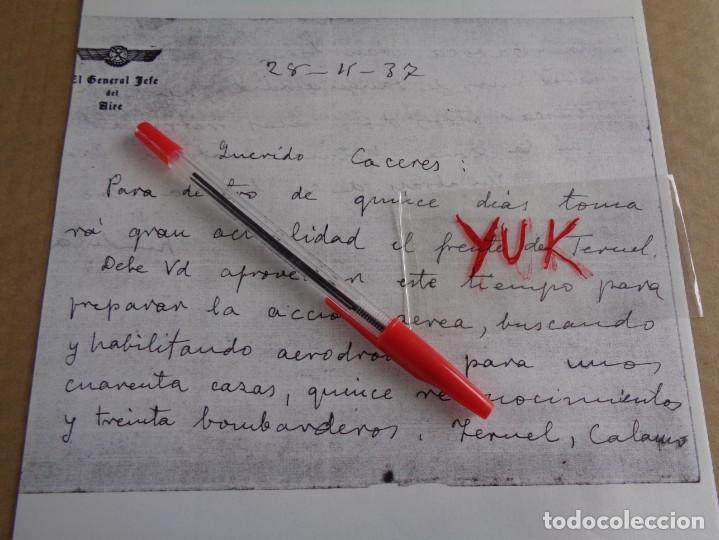 El General Jefe
del
Aire
28-4-37
Querido Caceres:
Para de tro de quince días toma
rá gran ac lidad el frente de Teruel.
YUK
Debe Vd aprove r este tiempo para
preparar la acció erea, buscando
y habilitando aerodro para unos
cuarenta cazas, quince re nocimientos
y treinta bombarderos. Teruel, Calamo
todocoleccion